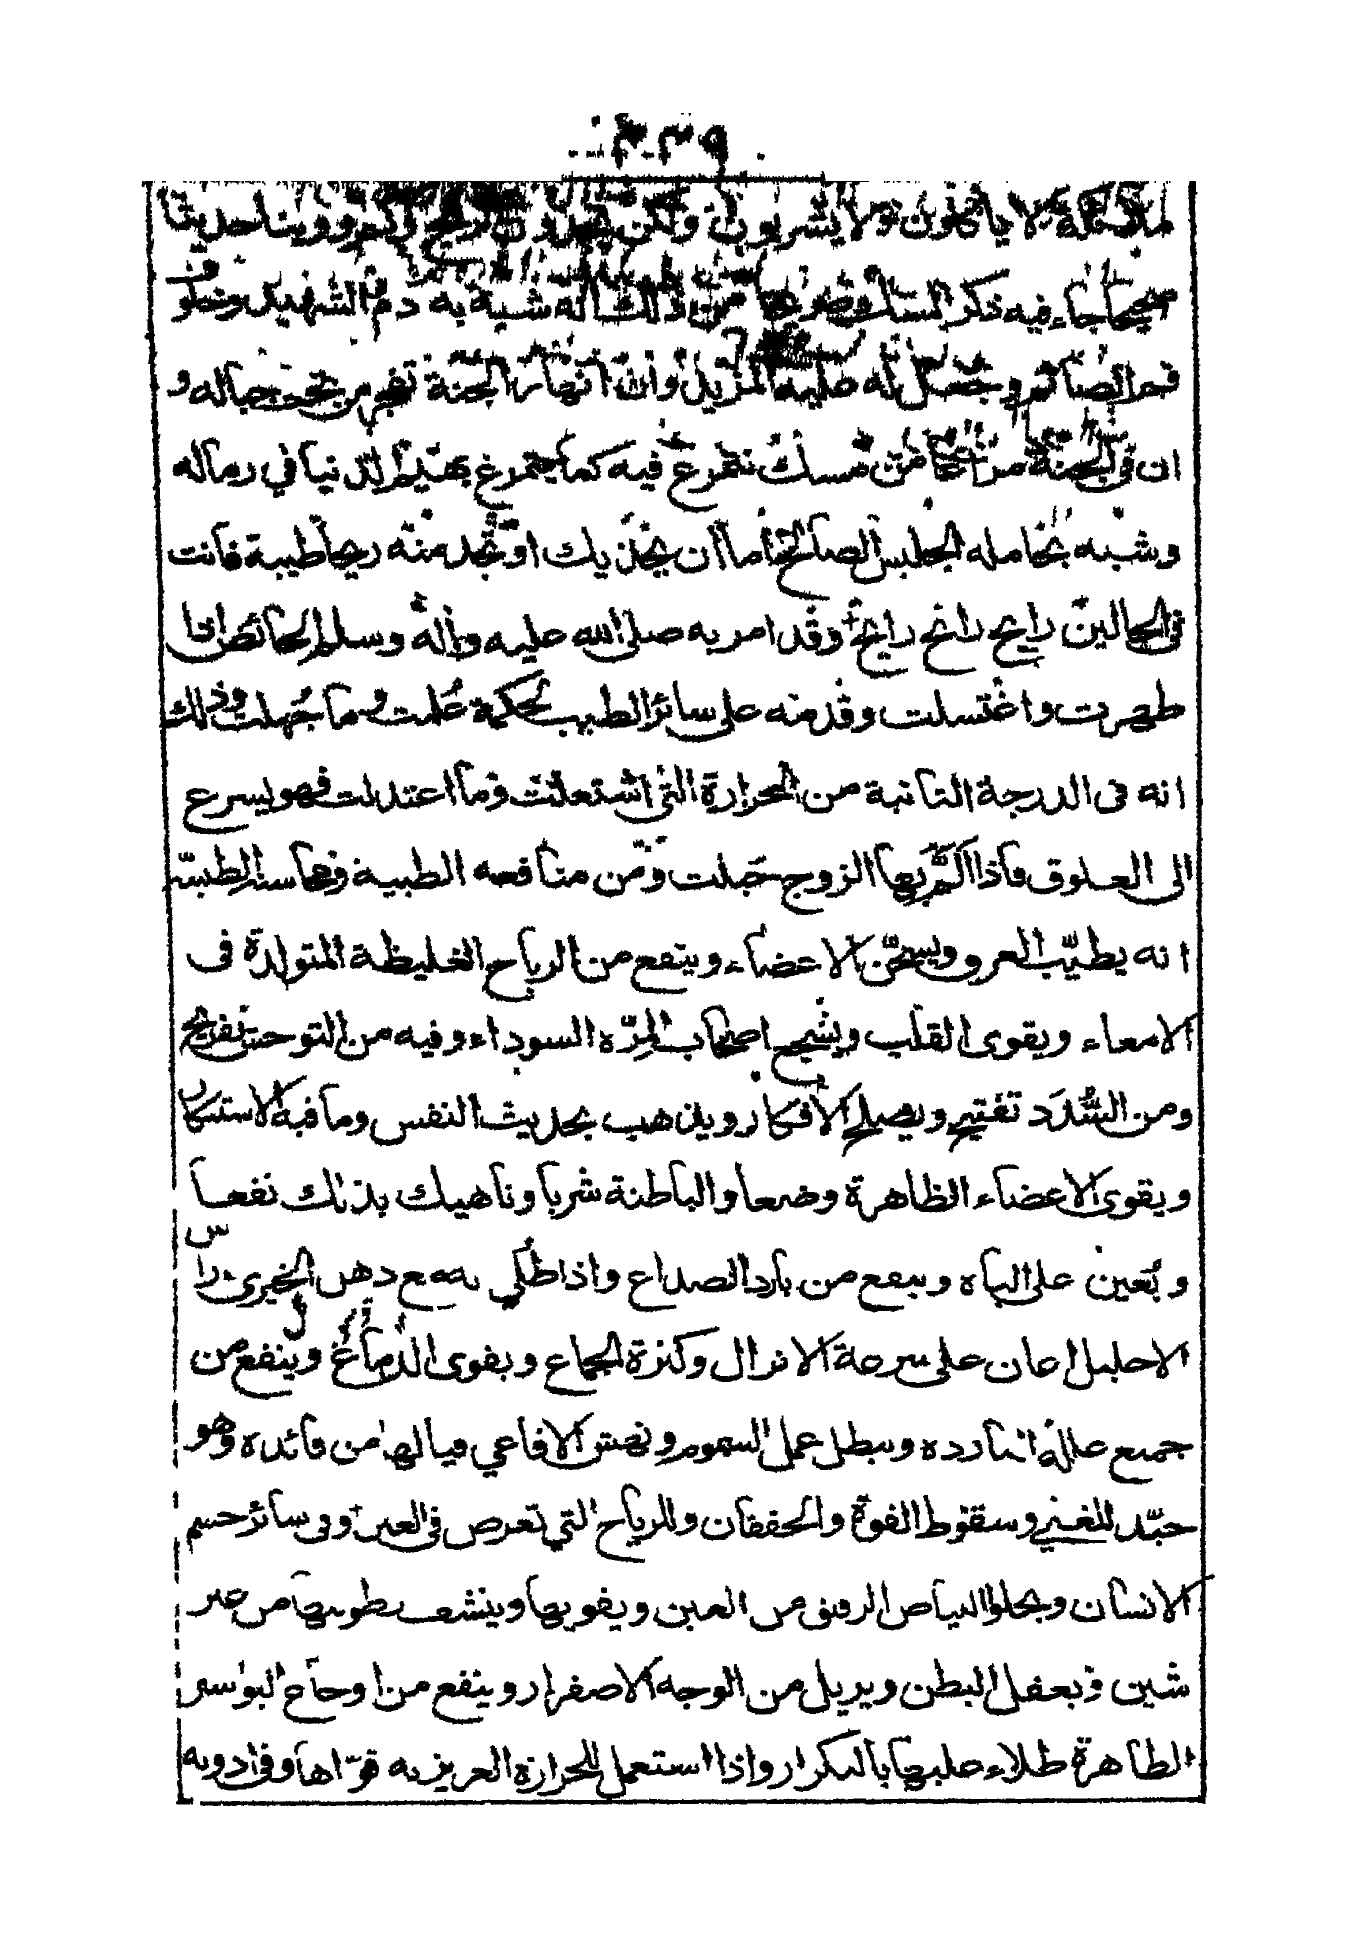 لا يأكلون ولا يشربون ولكن يجدون روايح وروينا حديثا
صحيحا جاء فيه ذكر المسك من ذلك انه شبه به دم الشهيد وخلو
فم الصائم وحصل له عليه المزيد وان انهار الجنة تفجر من تحت جباله و
ان في الجنة مراغا من مسك تتمرغ فيه كما يتمرغ بهيم الدنيا في رماله
وشبه بحامله الجليس الصالح أما أن يحذيك او تجد منه ريحا طيبة فانت
في الحالين رايح رايح رايح وقد امر به صلى الله عليه وآله وسلم الحائض اذا
طهرت واغتسلت وقدمه على سائر الطيب لحكمة علمت وما جهلت وذلك
انه في الدرجة الثانية من الحرارة التي اشتعلت وما اعتدلت فهو يسرع
الى العلوق فاذا الم بها الزوج حبلت ومن منافعه الطبية
انه يطيب العرق ويسخن الاعضاء وينفع من الرياح الغليظة المتولدة في
الامعاء ويقوى القلب ويشجع اصحاب المرة السوداء وفيه من التوحش تفريح
ومن السدد تفتيح ويصلح الأفكار ويذهب بحديث النفس وما فيه الاستنكار
ويقوى الاعضاء الظاهرة وضعا والباطنة شربا وناهيك بذلك نفعا
ويعين على الباه وينفع من بارد الصداع واذا طلي به مع دهن الخيرى راس
الاحليل اعان على سرعة الانزال وكثرة الجماع ويقوى الدماغ وينفع من
جميع علله الباردة ويبطل عمل السموم ونهش الافاعي فيالها من فائده وهو
جيد للغشي وسقوط القوة والخفقان وللرياح التي تعرض في العين وفي سائر جسم
الانسان ويجلو البياض الرقيق من العين ويقويها وينشف رطوبتها من غير
شين ويعقل البطن ويزيل من الوجه الاصفرار وينفع من اوجاع البواسير
الظاهرة طلاء عليها بالتكرار واذا استعمل للحرارة الغريزيه قواها وفي ادويه